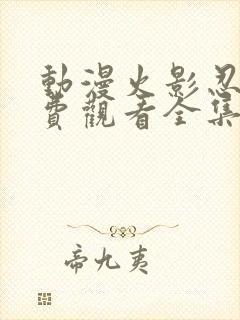 動漫火影忍
費觀看全集
帝九夷